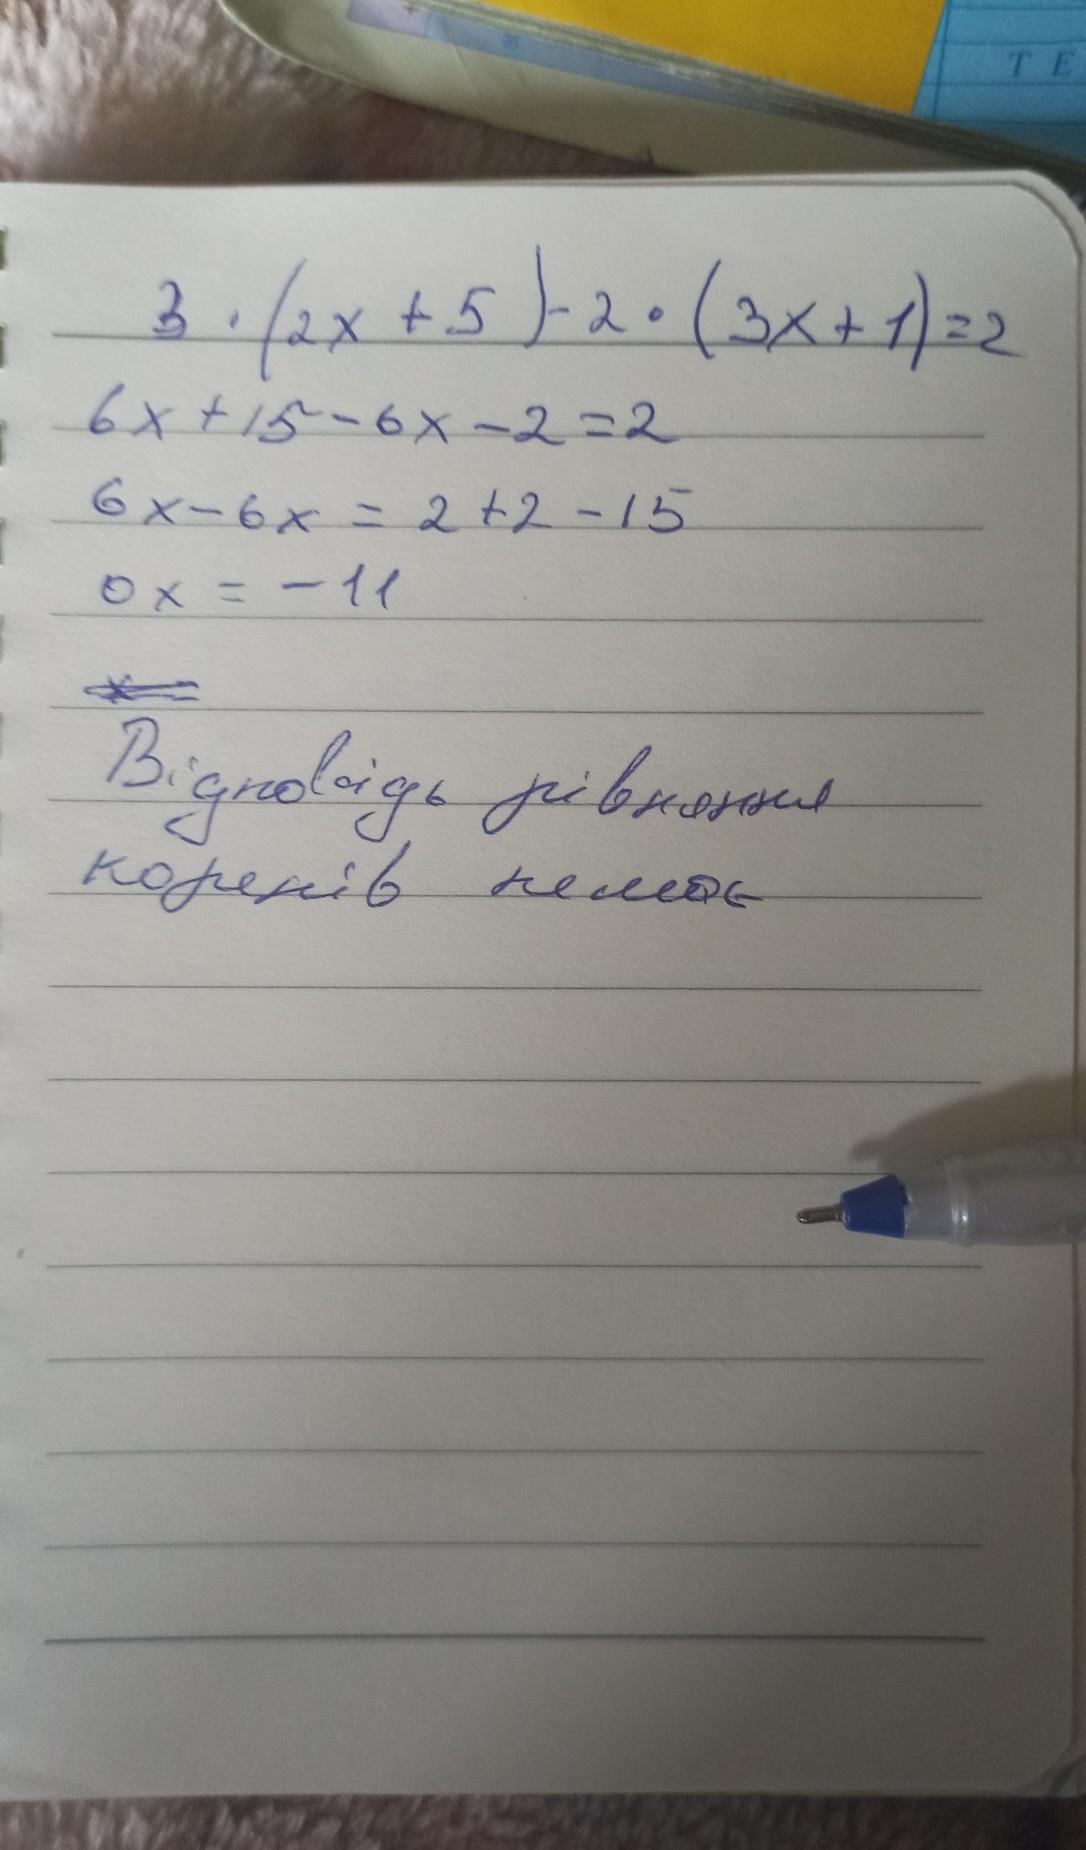 Т Е
3 · (2x + 5) - 2 · (3x + 1) = 2
6x + 15 - 6x - 2 = 2
6x - 6x = 2 + 2 - 15
0x = - 11
Відповідь рівняння
коренів немає